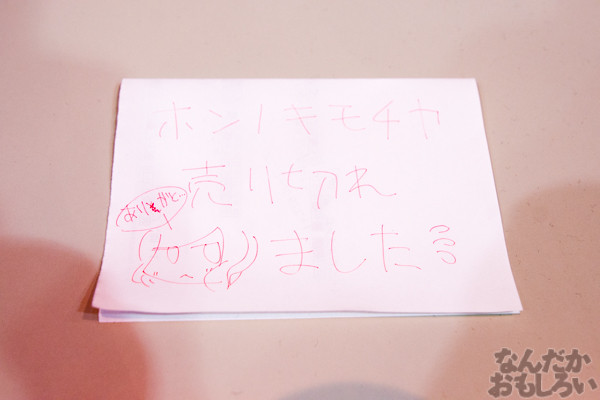 ホンノキモチヤ
売り切れ
ありがとー
ました
なんだか
おもしろい